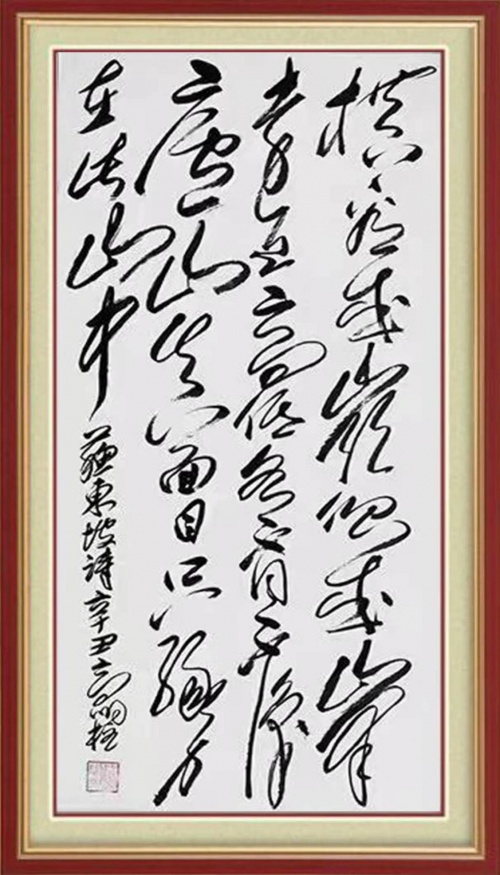 横看成嶺側成峰
遠近高低各不同不識
廬山真面目只緣身
在此山中
蘇東坡詩辛丑